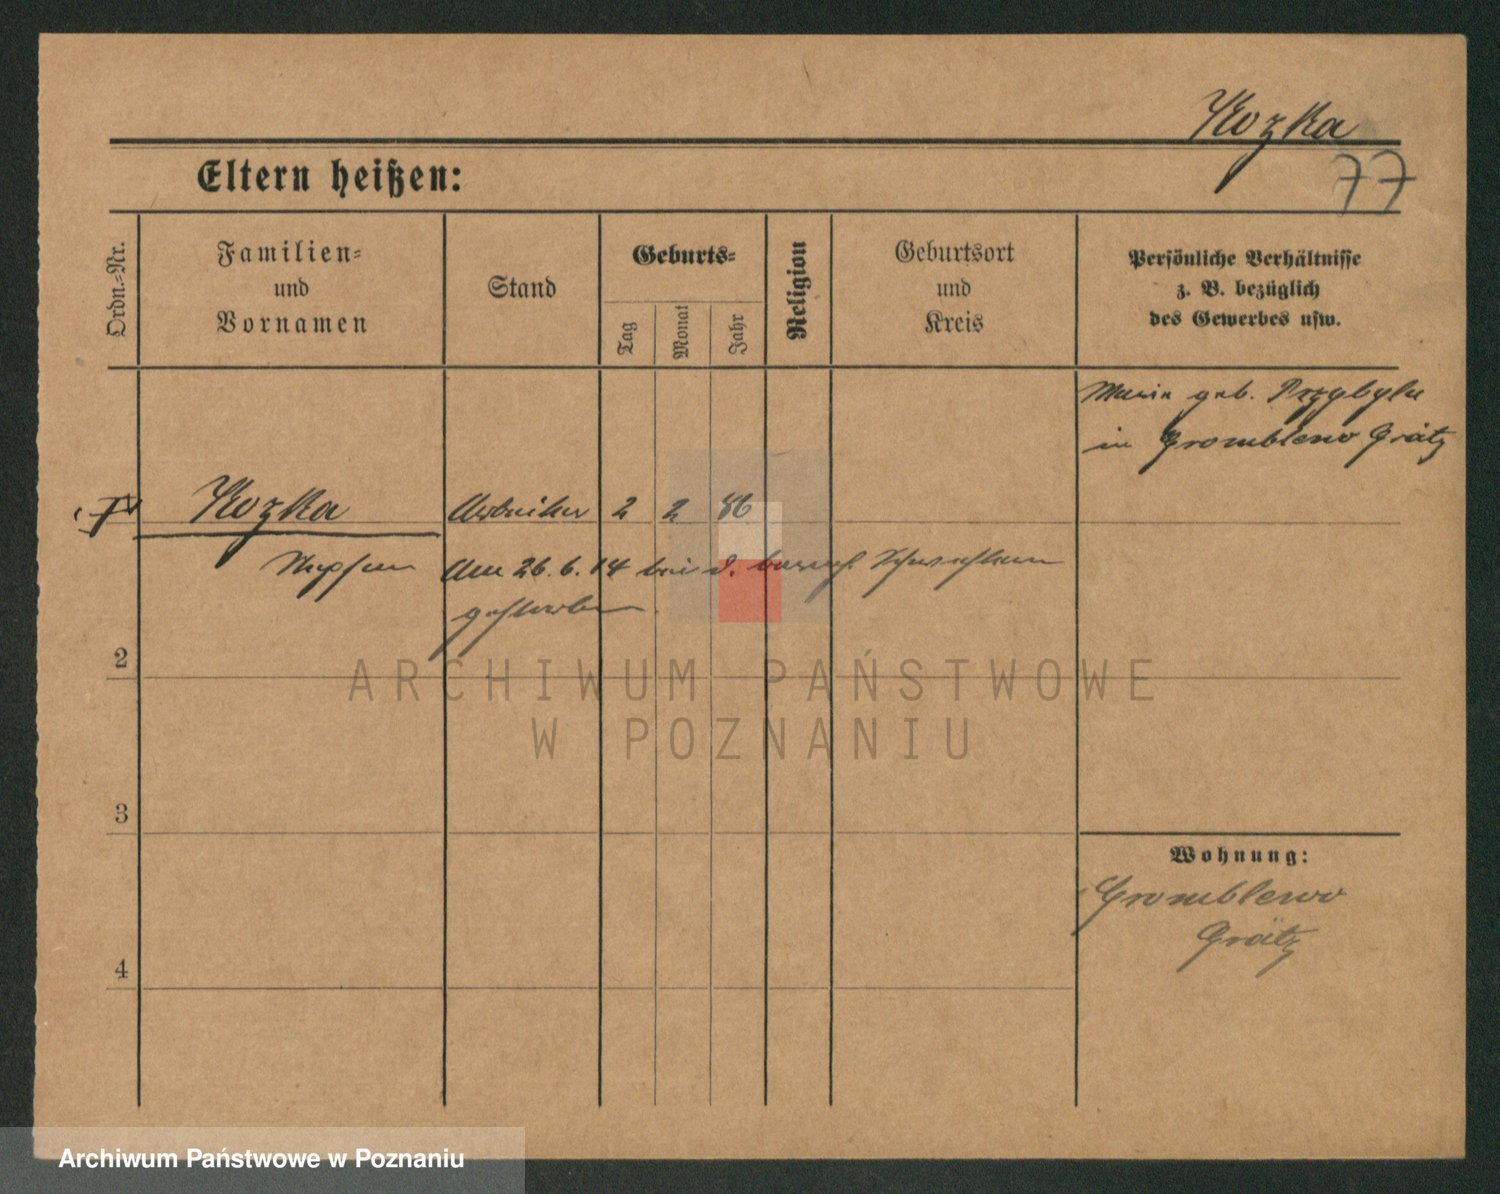 Kozka
77
Eltern heißen:
Ordn.-Nr.
Familien-
und
Vornamen
Stand
Geburts-
Tag
Monat
Jahr
Religion
Geburtsort
und
Kreis
Persönliche Verhältnisse
z. B. bezüglich
des Gewerbes usw.
Marie geb. Przybyla
in Gromblewo Grätz
Kozka Arbeiter 2 2 86
Am 26. 6. 14 bei d.
gestorben.
2
ARCHIWUM PAŃSTWOWE
W POZNANIU
3
Wohnung:
Gromblewo
Grätz
4
Archiwum Państwowe w Poznaniu